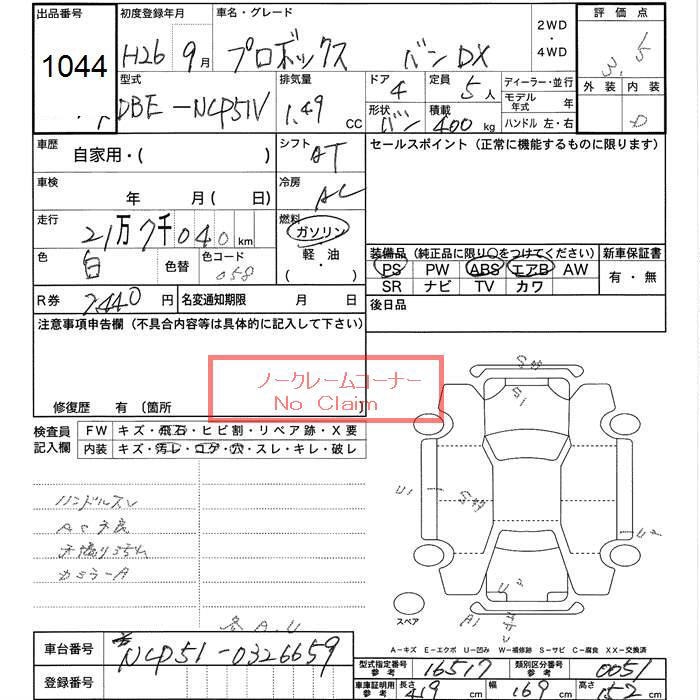 出品番号 初度登録年月 車名・グレード 2WD ・ 4WD 評価点
1044 H26 9月 プロボックス バン DX 3.5
型式 排気量 ドア 定員 ディーラー・並行 外装 内装
DBE-NCP51V 1.49 CC 4 5人 モデル年式 年
形状 バン 積載 400kg ハンドル 左・右 D
車歴 自家用・( ) シフト AT セールスポイント (正常に機能するものに限ります)
車検 年 月(日) 冷房 AC
走行 21万7千040km 燃料 ガソリン 軽・油 ( )
装備品 (純正品に限り○をつけてください) 新車保証書
色 白 色替 色コード 058
PS PW ABS エアB AW 有・無
SR ナビ TV カワ
R券 7440円 名変通知期限 月 日 後日品
注意事項申告欄 (不具合内容等は具体的に記入して下さい)
ノークレームコーナー
No Claim
修復歴 有 〔箇所 〕
検査員記入欄 FW キズ・飛石・ヒビ割・リペア跡・X要
内装 キズ・汚レ・コゲ・穴・スレ・キレ・破レ
ハンドルスレ
AC不良
カミラーA
S
S1
U1
S
U
U
A1
スペア
A-キズ E-エクボ U-凹み W-補修跡 S-サビ C-腐食 XX-交換済
車台番号 NCP51-0326659
登録番号
型式指定番号 参考 16517 類別区分番号 参考 0051
車庫証明用 参考 長さ 419cm 幅 169cm 高さ 152cm